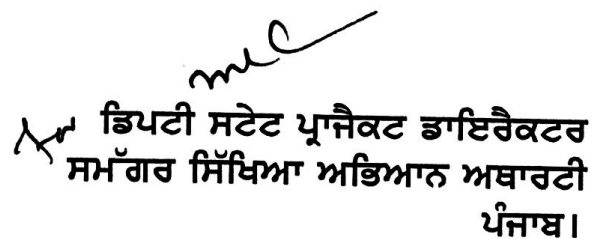 ਡਿਪਟੀ ਸਟੇਟ ਪ੍ਰਾਜੈਕਟ ਡਾਇਰੈਕਟਰ
ਸਮੱਗਰ ਸਿੱਖਿਆ ਅਭਿਆਨ ਅਥਾਰਟੀ
ਪੰਜਾਬ।